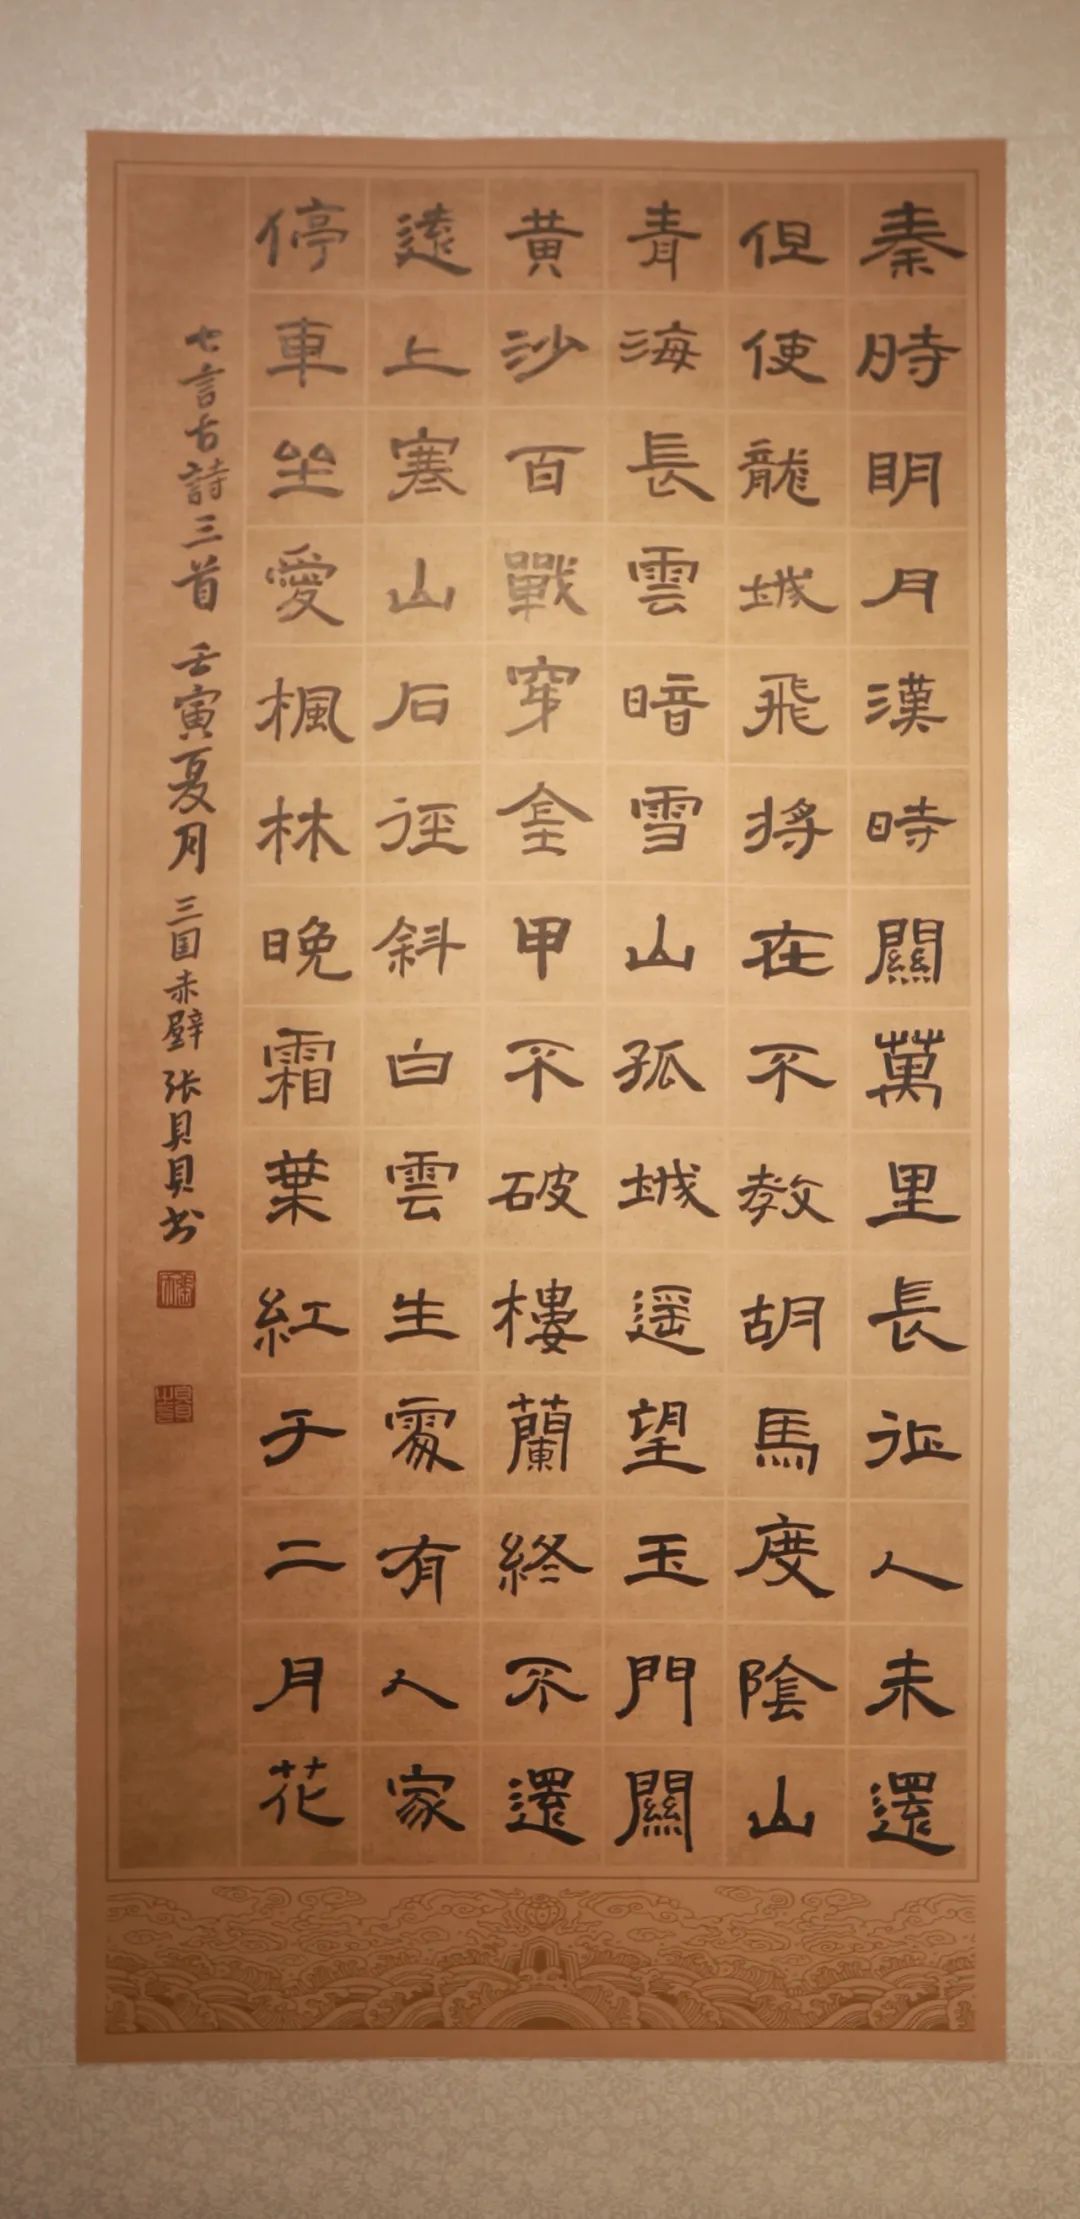 秦時明月漢時關萬里長征人未還
但使龍城飛將在不教胡馬度陰山
青海長雲暗雪山孤城遥望玉門關
黄沙百戰穿金甲不破樓蘭終不還
遠上寒山石徑斜白雲生處有人家
停車坐愛楓林晚霜葉紅于二月花
七言古詩三首 壬寅夏月 三国赤壁 张贝贝书